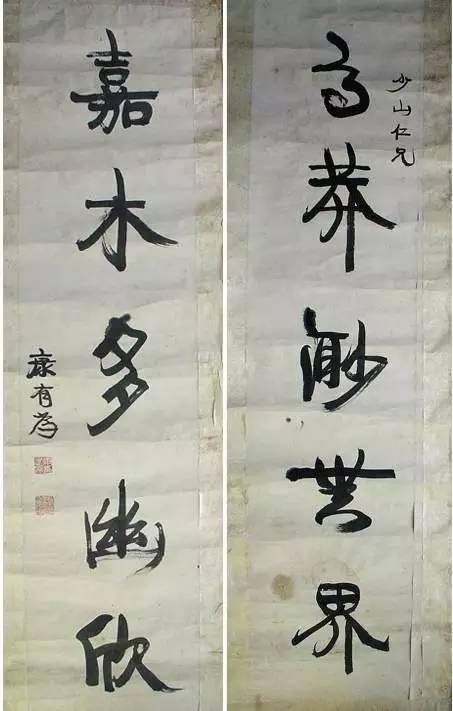 少山仁兄
高莽渺無界
嘉木多幽欣
康有為